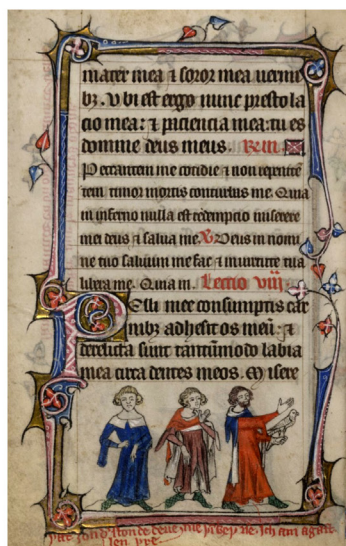 mater mea ⁊ soror mea uermi
bꝫ. Vbi est ergo nunc presto la
cio mea: ⁊ paciencia mea: tu es
domine deus meus.
Peccantem me cotidie ⁊ non repente
tem timor mortis conturbat me. Quia
in inferno nulla est redempcio miserere
mei deus ⁊ salua me. ℣ Deus in nomi
ne tuo saluum me fac ⁊ in uirtute tua
libera me. Quia in. Lectio viii
Pelli mee consumptis car
nibꝫ adhesit os meū: ⁊
derelicta sunt tantūmodo labia
mea circa dentes meos. Misere
ich am agast